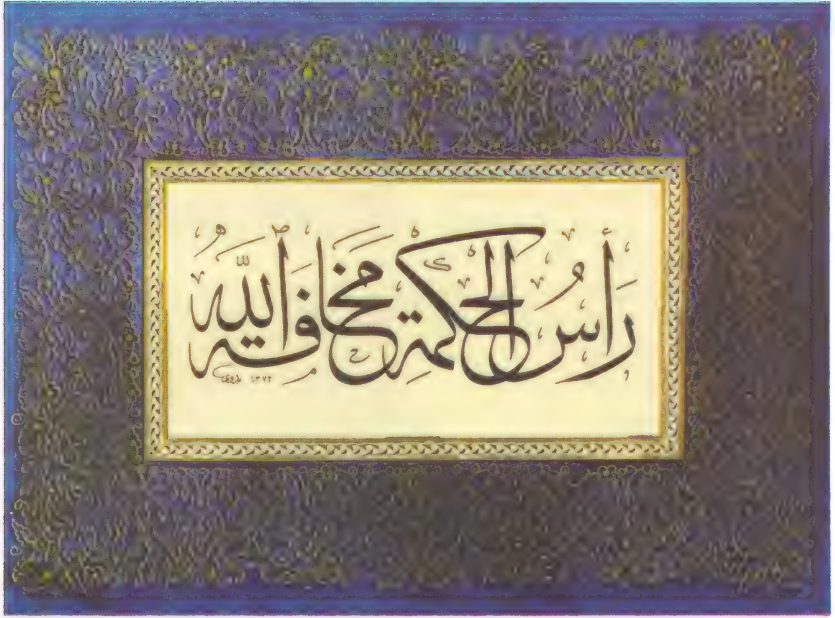 رَأْسُ الْحِكْمَةِ مَخَافَةُ ٱللَّهِ
١٣٧٢